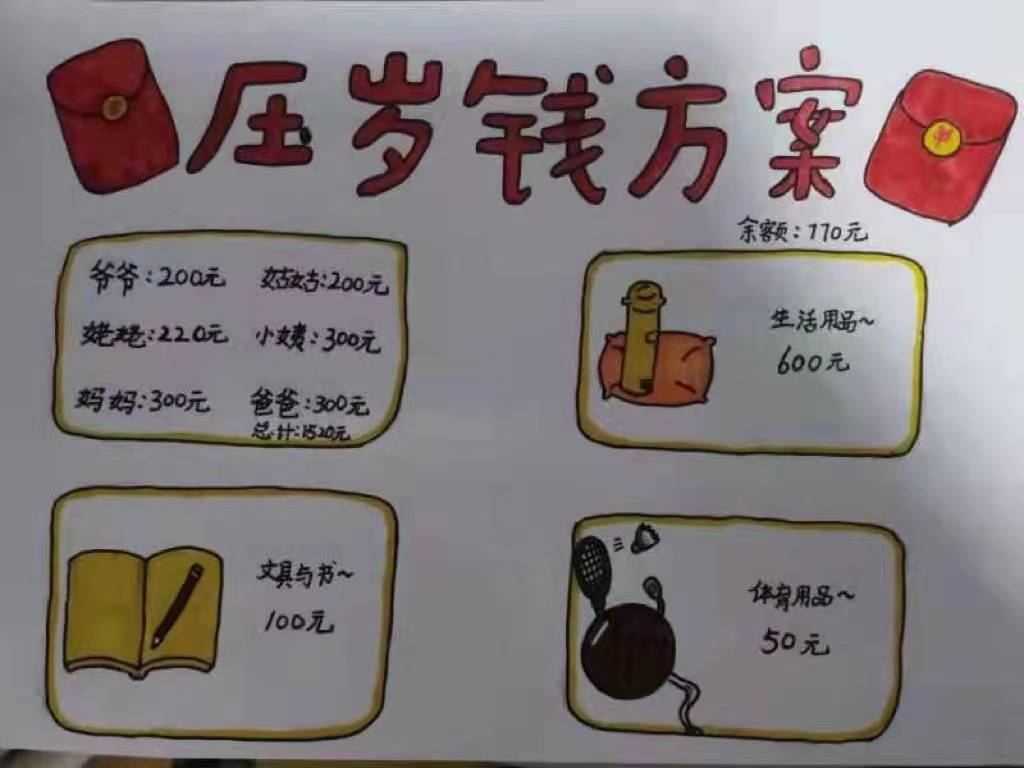 压岁钱方案
余额：770元
爷爷：200元 姑姑：200元
姥姥：220元 小姨：300元
妈妈：300元 爸爸：300元
总计：1520元
生活用品~
600元
文具与书~
100元
体育用品~
50元